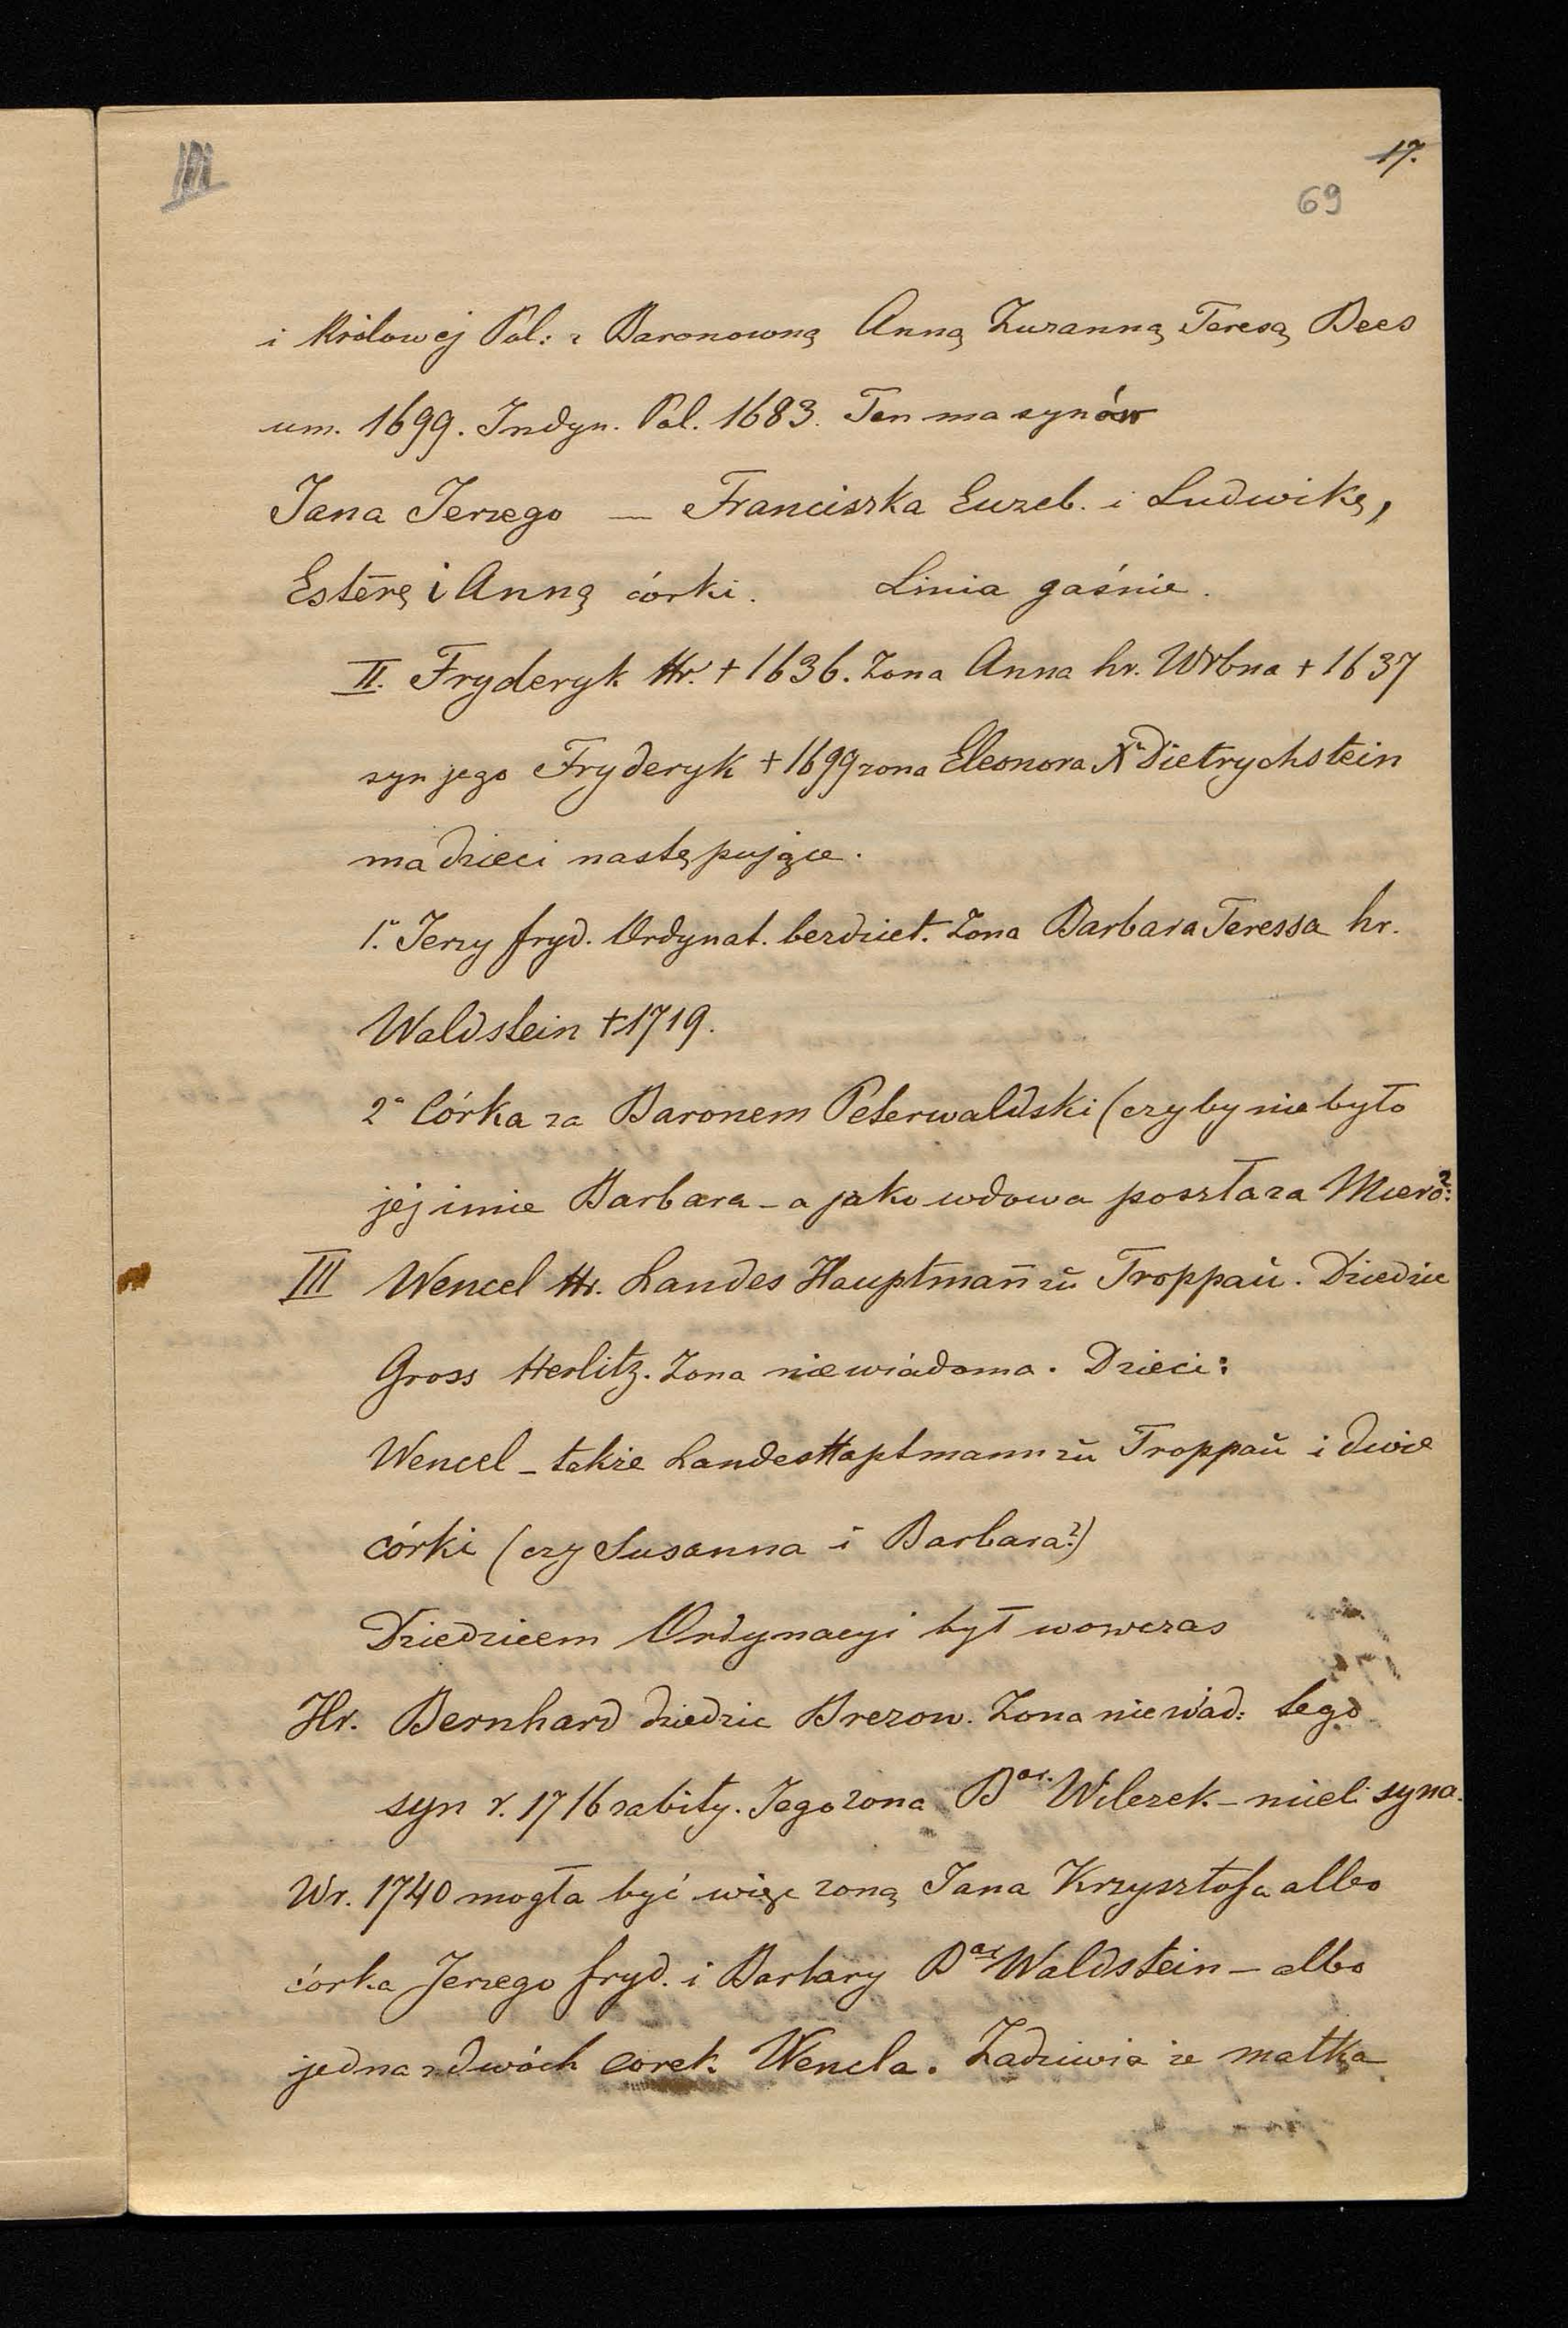 III
17.
69
i Królowej Pol: z Baronowną Anną Zuzanną Teresą Bees
um. 1699. Indyn. Pol. 1683. Ten ma synów
Jana Jerzego — Franciszka Euzeb. i Ludwikę,
Esterę i Anną córki. Linia gaśnie.
II. Fryderyk Hr. + 1636. Zona Anna hr. Wrbna + 1637
syn jego Fryderyk + 1699 zona Eleonora Xa Dietrychstein
ma dzieci następujące.
1.° Jerzy fryd. Ordynat. bezdziet. Zona Barbara Teressa hr.
Waldstein + 1719.
2° Córka za Baronem Peterwaldski (czyby nie było
jej imie Barbara - a jako wdowa poszła za Miero:?
III Wencel Hr. Landes Hauptmañ zŭ Troppaŭ. Dziedzic
Gross Herlitz. Zona niewiadoma. Dzieci:
Wencel - takze Landes Haptmann zŭ Troppaŭ i dwie
córki (czy Susanna i Barbara?)
Dziedzicem Ordynacyi był wowczas
Hr. Bernhard dziedzic Brezow. Zona niewiad: tego
syn r. 1716 zabity. Jego zona Bar. Wilczek - mieli syna.
W r. 1740 mogła być więc zoną Jana Krzysztofa albo
córka Jerzego fryd. i Barbary Bar Waldstein - albo
jedna z dwóch corek Wencla. Zadziwia ze matka